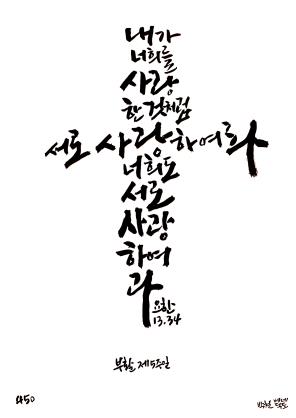 내가
너희를
사랑
한 것처럼
서로 사랑하여라
너희도
서로
사랑
하여
라
요한
13.34
부활 제5주일
450